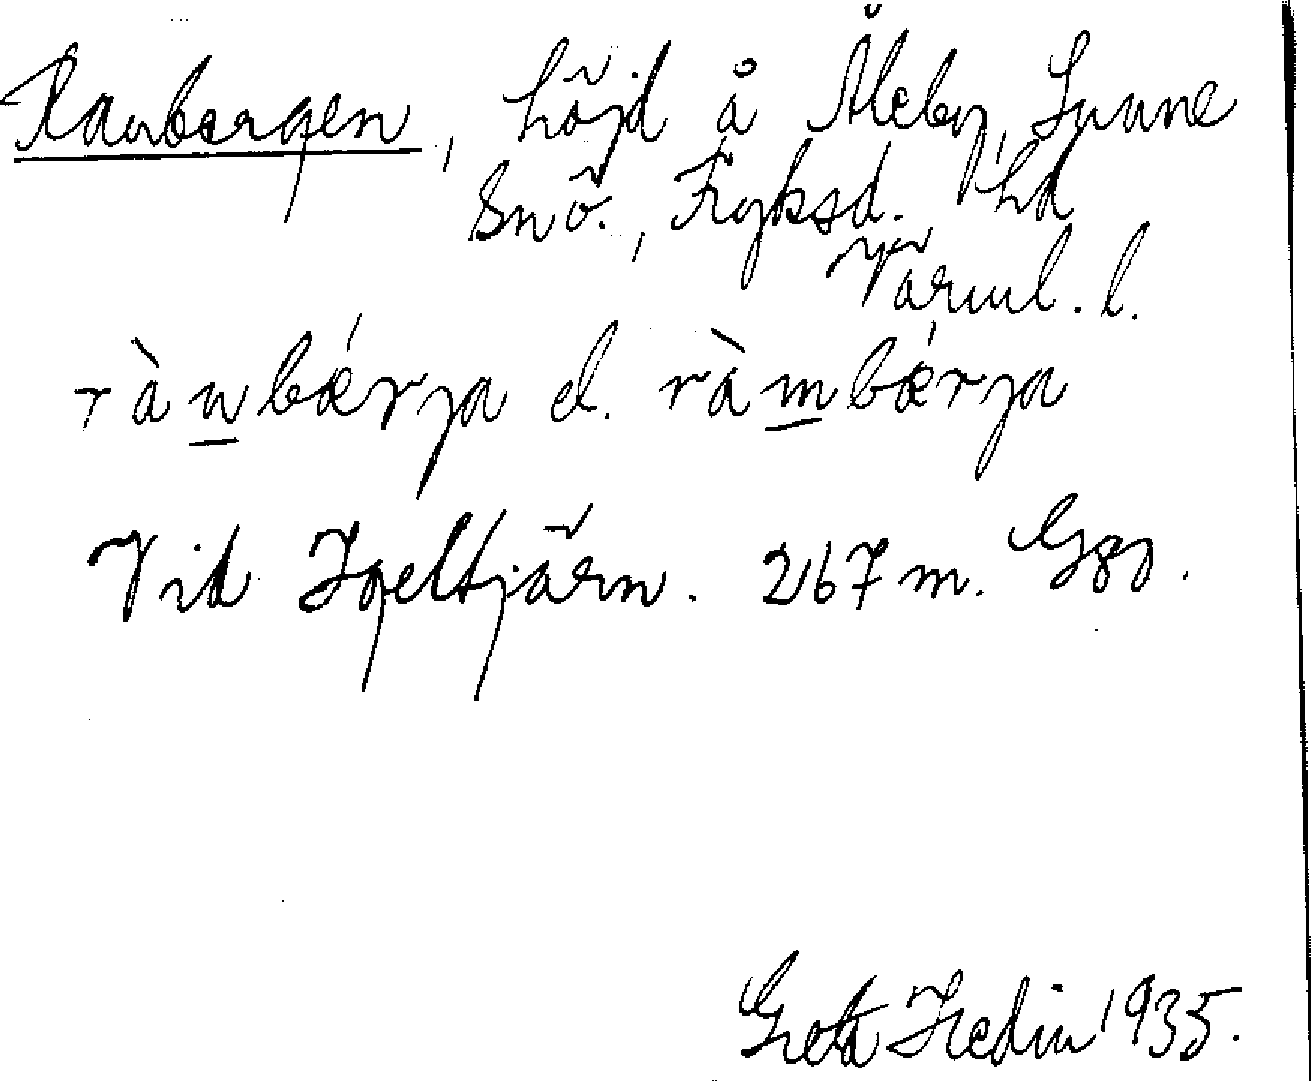 Ranbergen, höjd å Åleby, Sunne
Snö., Fryksd. hd
Värml. l.
rànbǽrja el. ràmbǽrja
Vid Igeltjärn. 267 m. Ggg.
Greta Hedin 1935.